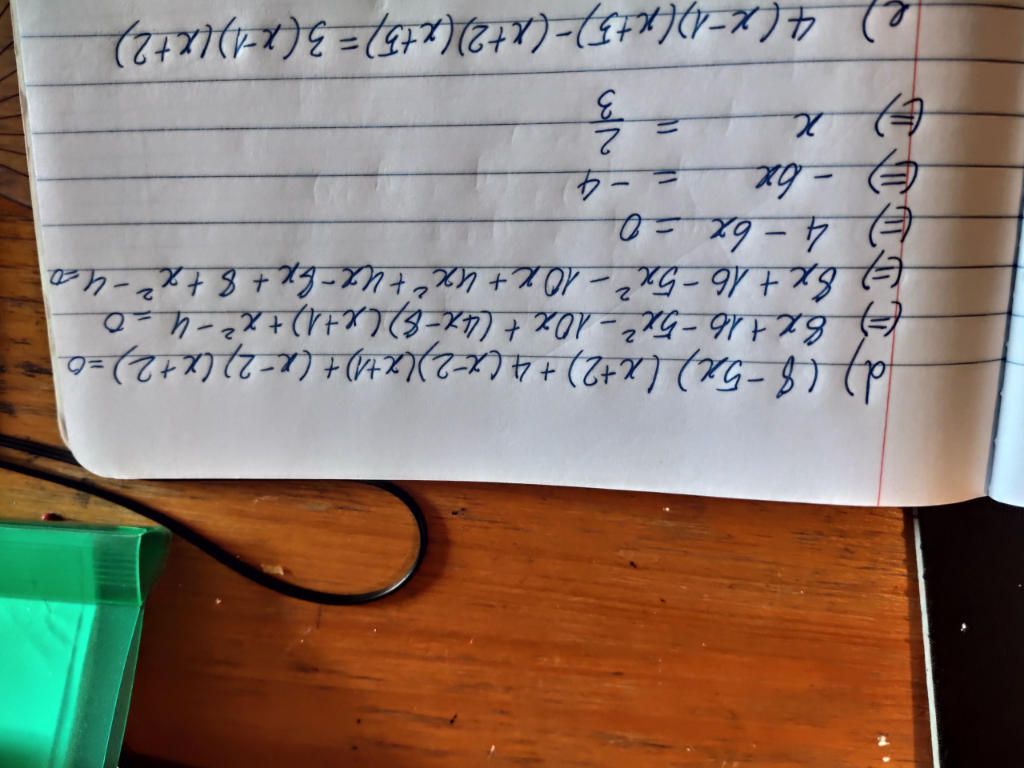 d) (8-5x)(x+2)+4(x-2)(x+1)+(x-2)(x+2)=0
(=) 8x+16-5x²-10x+(4x-8)(x+1)+x²-4=0
(=) 8x+16-5x²-10x+4x²+4x-8x+8+x²-4=0
(=) 4-6x=0
(=) -6x=-4
(=) x=2/3
e) 4(x-1)(x+5)-(x+2)(x+5)=3(x-1)(x+2)